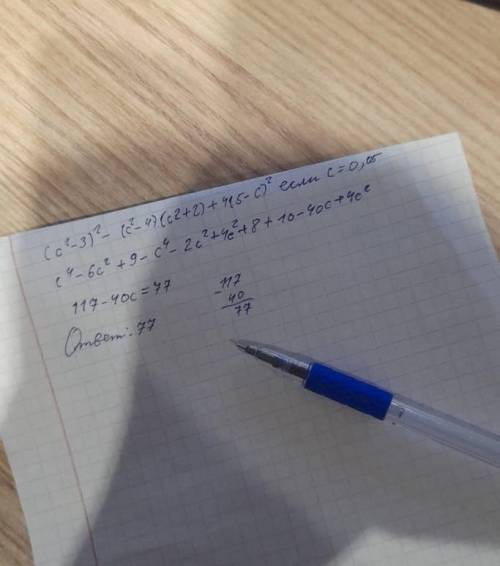 (c²-3)² - (c²-4)(c²+2) + 4(5-c)² если c = 0,05
c⁴ - 6c² + 9 - c⁴ - 2c² + 4c² + 8 + 10 - 40c + 4c²
117 - 40c = 77
-117
40
77
Ответ: 77